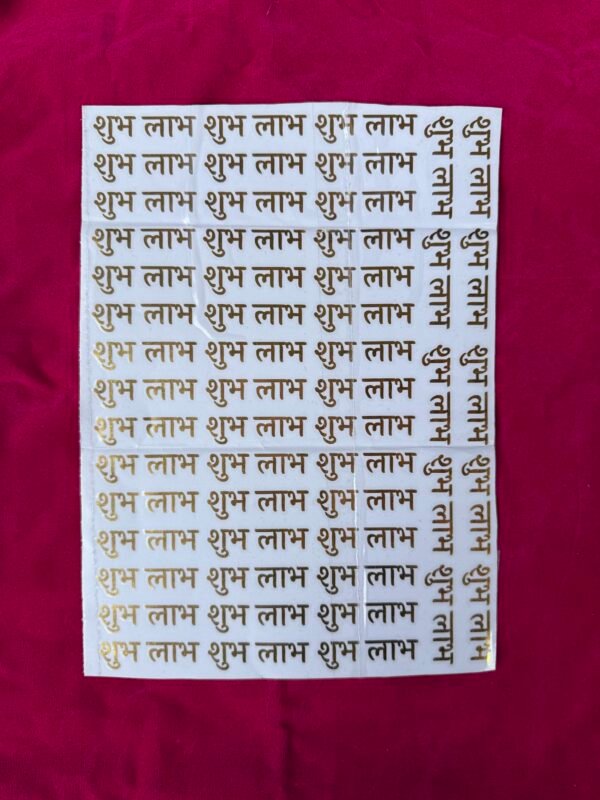 शुभ लाभ शुभ लाभ शुभ लाभ
शुभ लाभ शुभ लाभ शुभ लाभ
शुभ लाभ शुभ लाभ शुभ लाभ
शुभ लाभ शुभ लाभ शुभ लाभ
शुभ लाभ शुभ लाभ शुभ लाभ
शुभ लाभ शुभ लाभ शुभ लाभ
शुभ लाभ शुभ लाभ शुभ लाभ
शुभ लाभ शुभ लाभ शुभ लाभ
शुभ लाभ शुभ लाभ शुभ लाभ
शुभ लाभ शुभ लाभ शुभ लाभ
शुभ लाभ शुभ लाभ शुभ लाभ
शुभ लाभ शुभ लाभ शुभ लाभ
शुभ लाभ शुभ लाभ शुभ लाभ
शुभ लाभ शुभ लाभ शुभ लाभ
शुभ लाभ शुभ लाभ शुभ लाभ
शुभ लाभ शुभ लाभ शुभ लाभ शुभ लाभ शुभ लाभ
शुभ लाभ शुभ लाभ शुभ लाभ शुभ लाभ शुभ लाभ